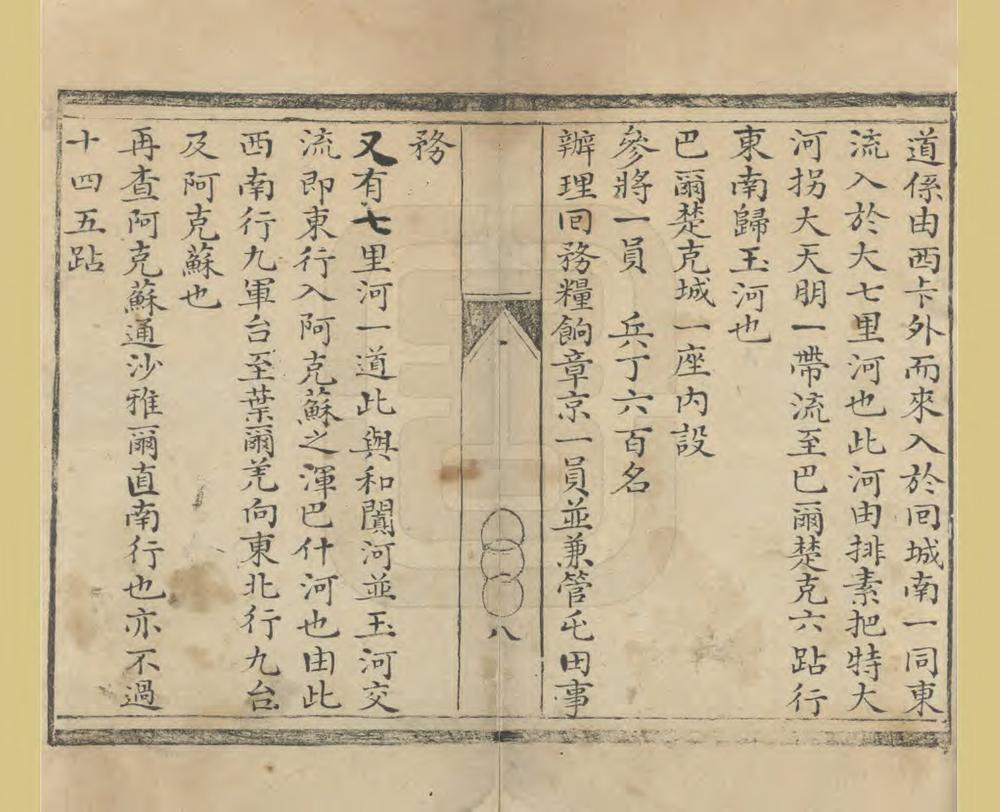 道係由西卡外而來入於囘城南一同東
流入於大七里河也此河由排素把特大
河拐大天朋一帶流至巴爾楚克六跕行
東南歸玉河也
巴爾楚克城一座內設
參將一員　兵丁六百名
辦理回務糧餉章京一員並兼管屯田事
八
務
又有七里河一道此與和闐河並玉河交
流即東行入阿克蘇之渾巴什河也由此
西南行九軍台至葉爾羌向東北行九台
及阿克蘇也
再查阿克蘇通沙雅爾直南行也亦不過
十四五跕